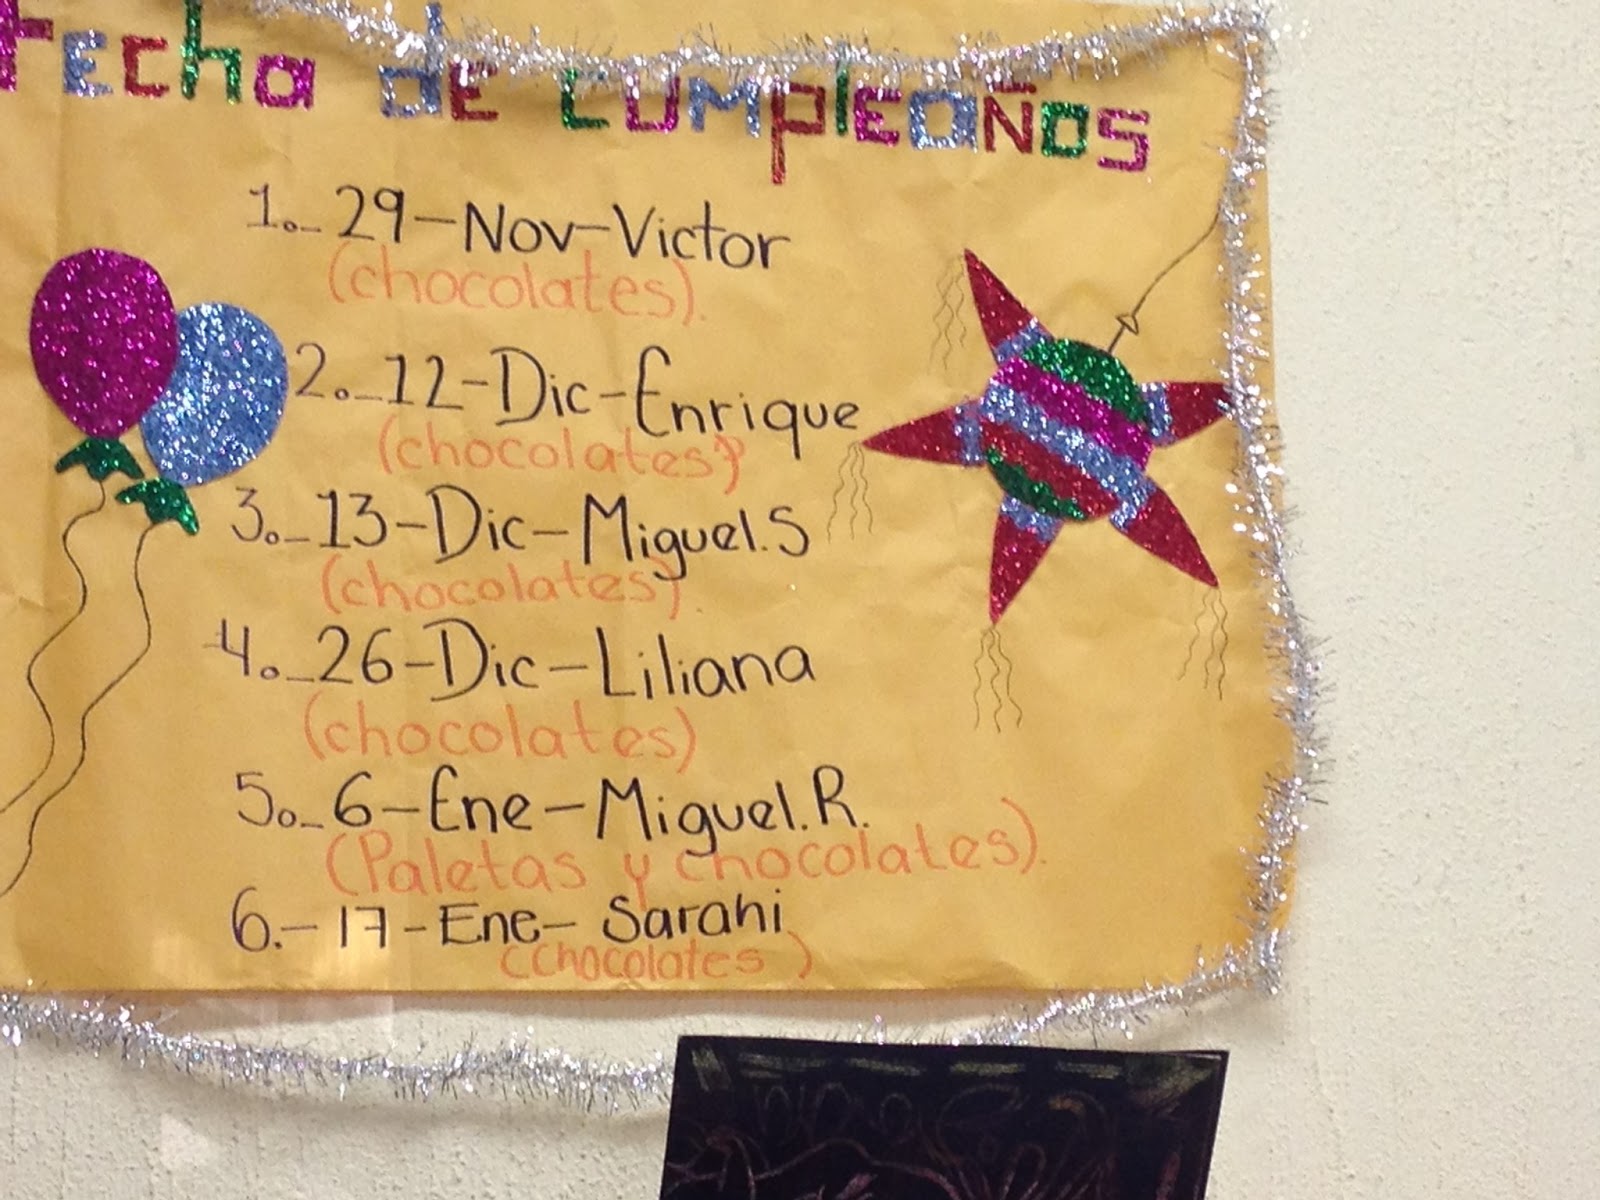 Fecha de cumpleaños
1._29-Nov-Victor
(chocolates).
2._12-Dic-Enrique
(chocolates)
3._13-Dic-Miguel.S
(chocolates).
4._26-Dic-Liliana
(chocolates)
5._6-Ene-Miguel.R.
(Paletas y chocolates).
6.-17-Ene-Sarahi
(chocolates)